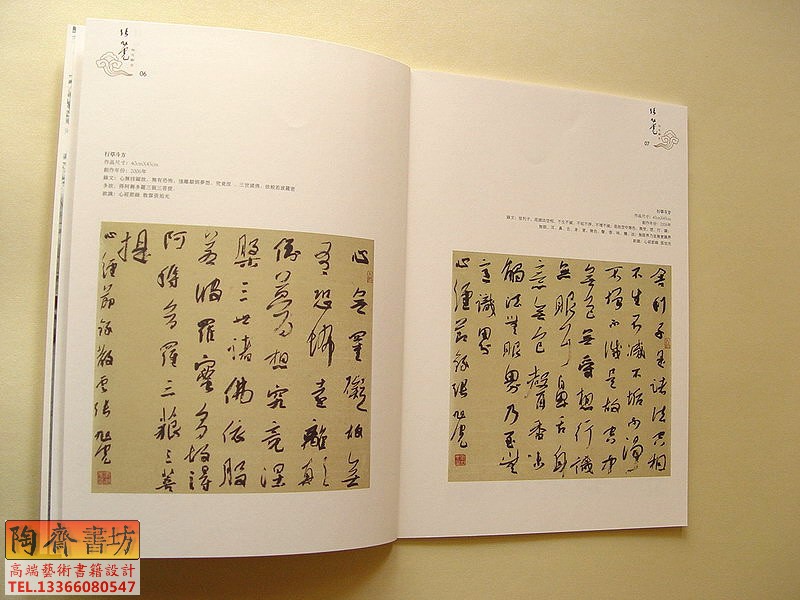 06
行草斗方
作品尺寸：40cmX45cm
創作年份：2006年
錄文：心無罣礙故，無有恐怖，遠離顛倒夢想，究竟涅，三世諸佛，依般若波羅蜜
多故，得阿耨多羅三藐三菩提
心無罣礙故無
有恐怖遠離顛
倒夢想究竟涅
槃三世諸佛依般
若波羅蜜多故得
阿耨多羅三藐三菩
提
心經節錄
07
行草斗方
作品尺寸：40cmX45cm
創作年份：2006年
舍利子是諸法空相
不生不滅不垢不淨
不增不減是故空中
無色無受想行識
無眼耳鼻舌身
意無色聲香味
觸法無眼界乃至無
意識界
心經節錄
陶齋書坊
高端藝術書籍設計
TEL.13366080547